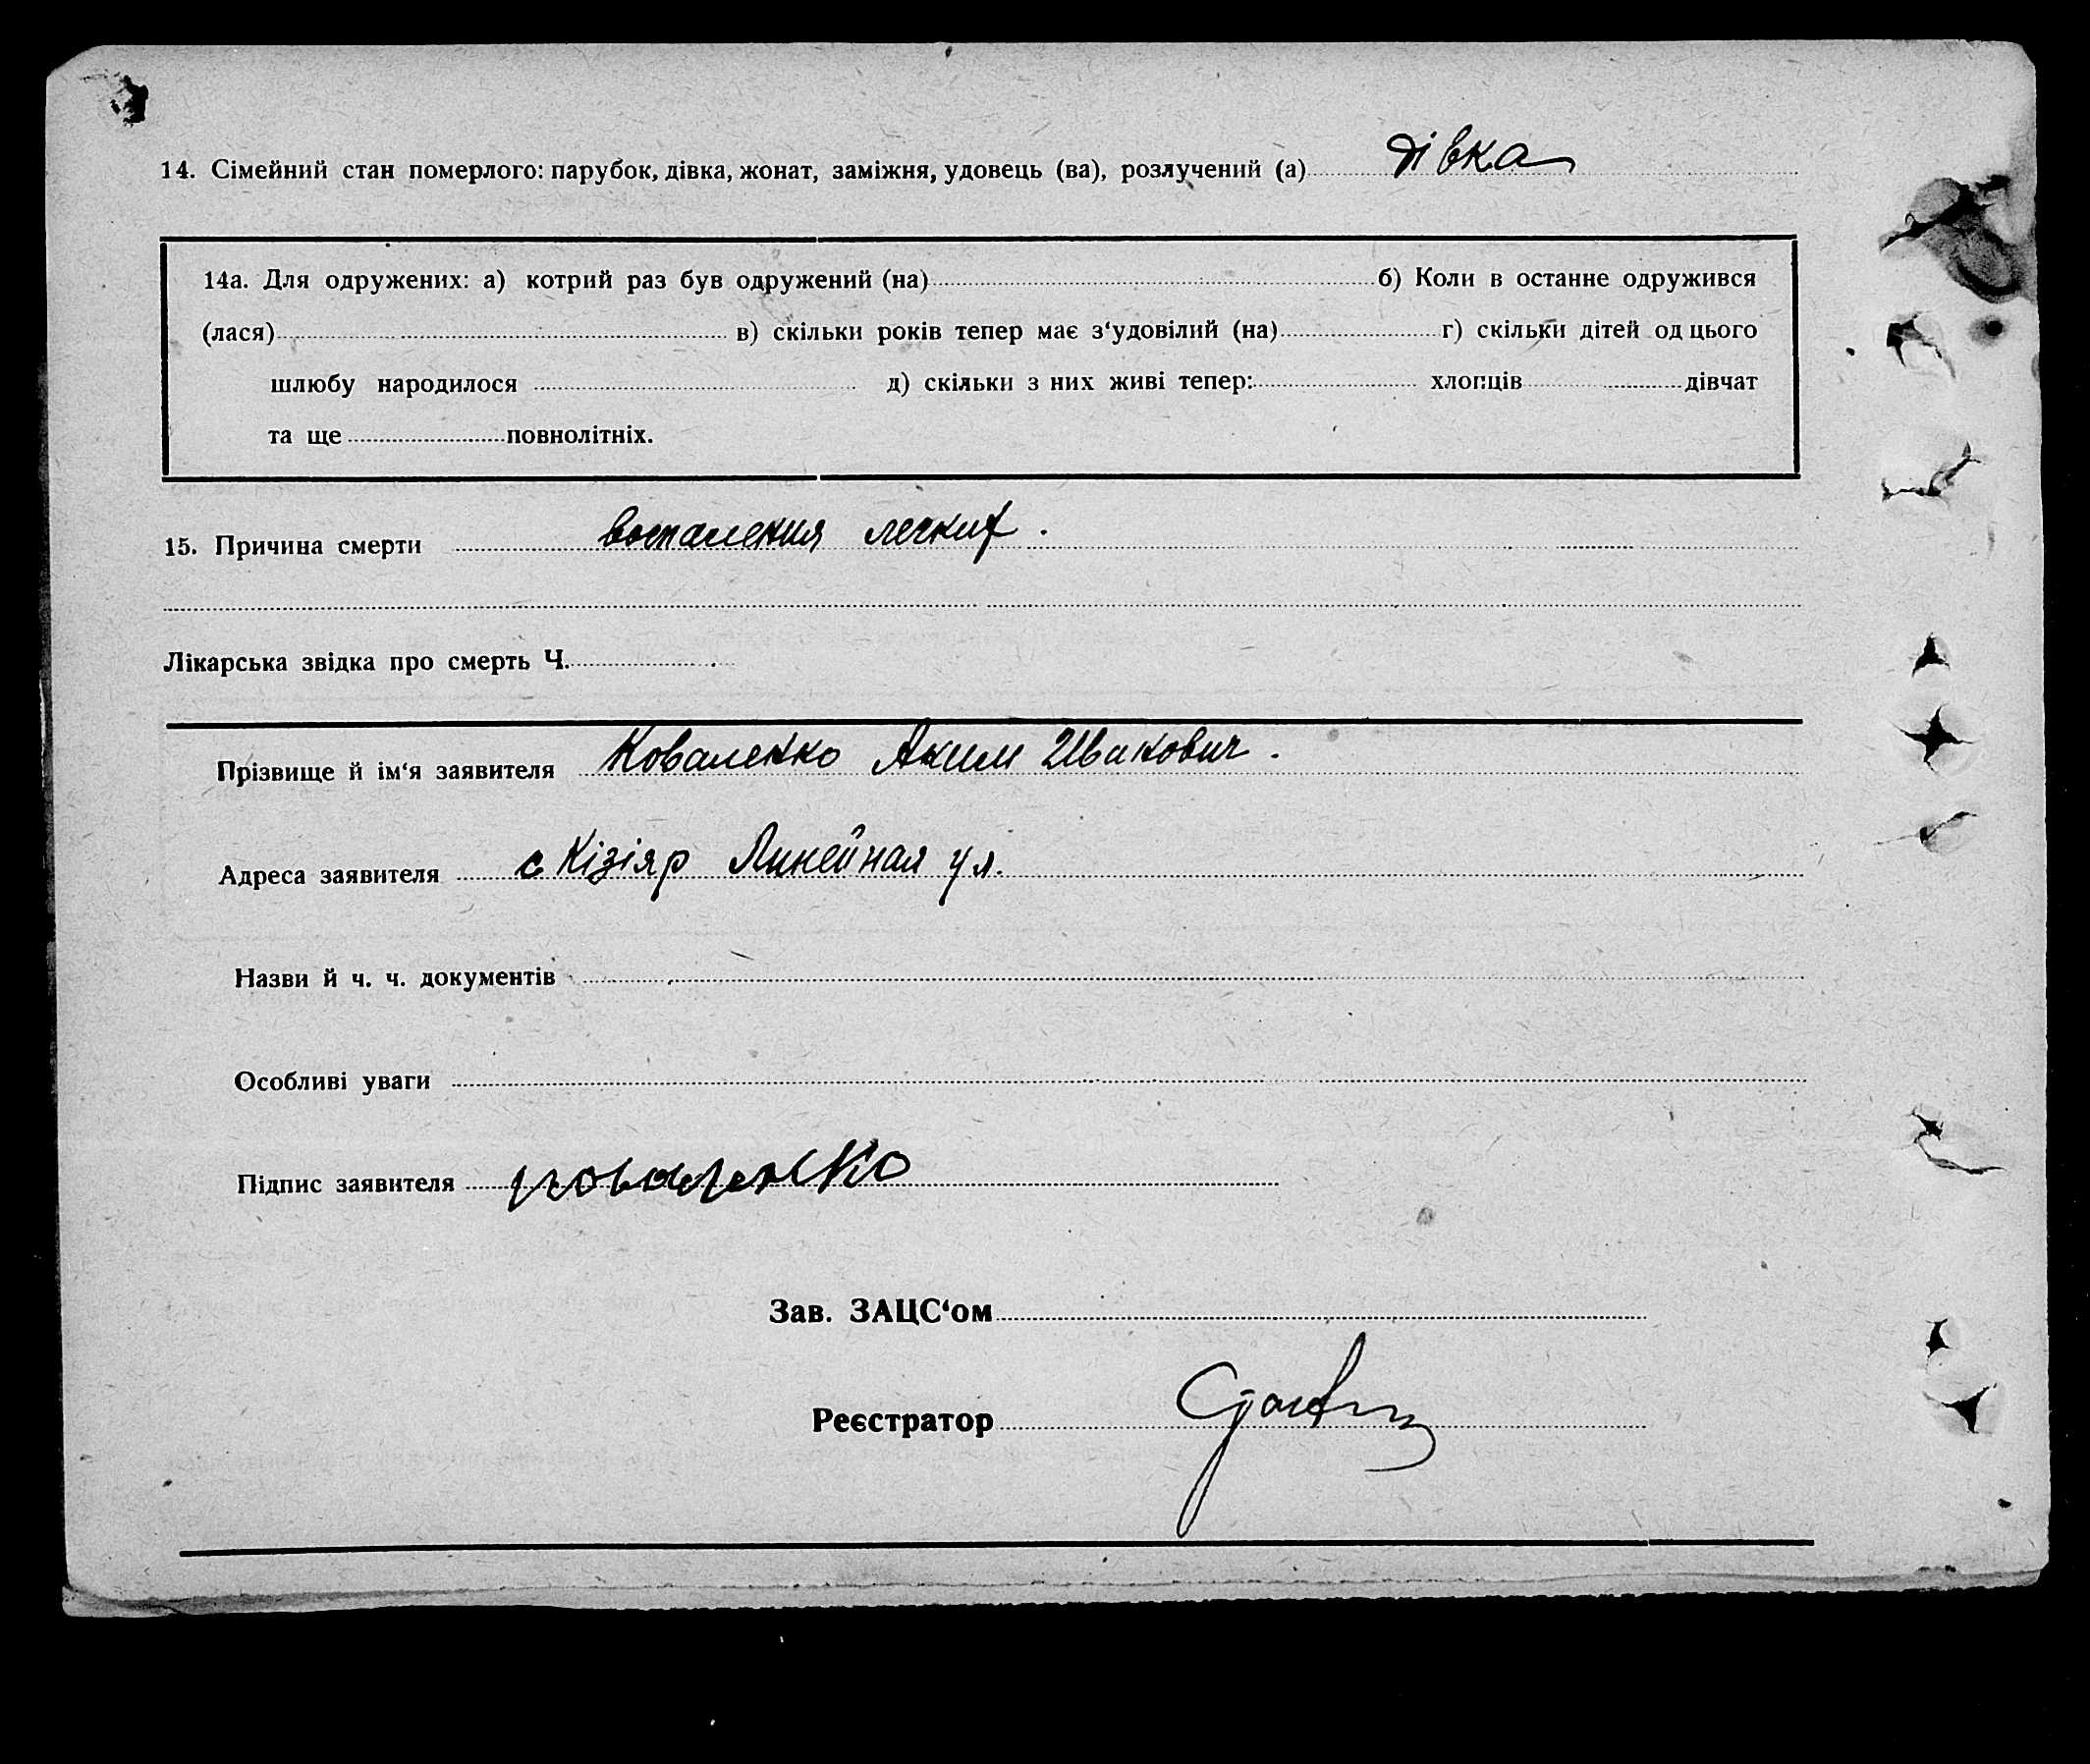 14. Сімейний стан померлого: парубок, дівка, жонат, заміжня, удовець (ва), розлучений (а) дівка
14а. Для одружених: а) котрий раз був одружений (на) б) Коли в останне одружився
(лася) в) скільки років тепер має з‘удовілий (на) г) скільки дітей од цього
шлюбу народилося д) скільки з них живі тепер: хлопців дівчат
та ще повнолітніх.
15. Причина смерти воспаления легких.
Лікарська звідка про смерть Ч.
Прізвище й ім‘я заявителя Коваленко Аким Иванович.
Адреса заявителя с Кізіяр Линейная ул.
Назви й ч. ч. документів
Особливі уваги
Підпис заявителя коваленко
Зав. ЗАЦС‘ом
Реєстратор